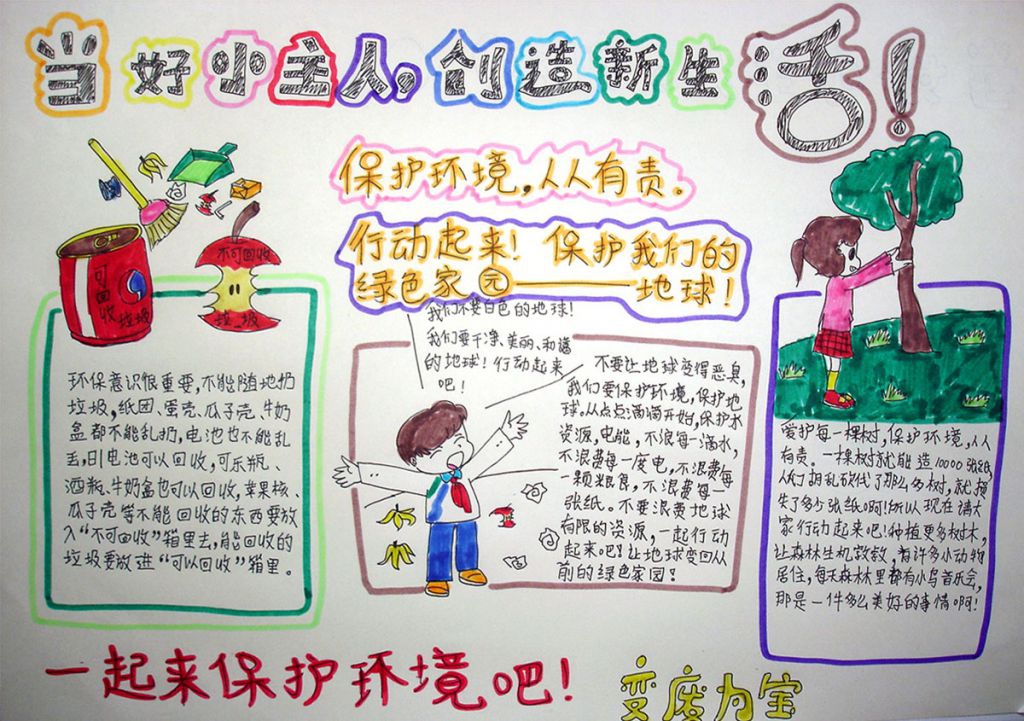 当好小主人，创造新生活！
保护环境，人人有责。
行动起来！保护我们的
绿色家园——地球！
可回收
垃圾
不可回收
垃圾
环保意识很重要，不能随地扔
垃圾，纸团、蛋壳、瓜子壳、牛奶
盒都不能乱扔，电池也不能乱
丢，旧电池可以回收，可乐瓶、
酒瓶、牛奶盒也可以回收，苹果核、
瓜子壳等不能回收的东西要放
入“不可回收”箱里去，能回收的
垃圾要放进“可以回收”箱里。
我们不要白色的地球！
我们要干净、美丽、和谐
的地球！行动起来
吧！
不要让地球变得恶臭，
我们要保护环境，保护地
球。从点点滴滴开始，保护水
资源，电能，不浪每一滴水，
不浪费每一度电，不浪费每
一颗粮食，不浪费每一
张纸。不要浪费地球
有限的资源，一起行动
起来吧！让地球变回从
前的绿色家园？
爱护每一棵树，保护环境，人人
有责。一棵树就能造10000张纸
人们胡乱砍伐了那么多树，就损
失了多少张纸啊！所以现在请大
家行动起来吧！种植更多树木，
让森林生机勃勃，有许多小动物
居住，每天森林里都有小鸟音乐会，
那是一件多么美好的事情啊！
一起来保护环境吧！
变废为宝